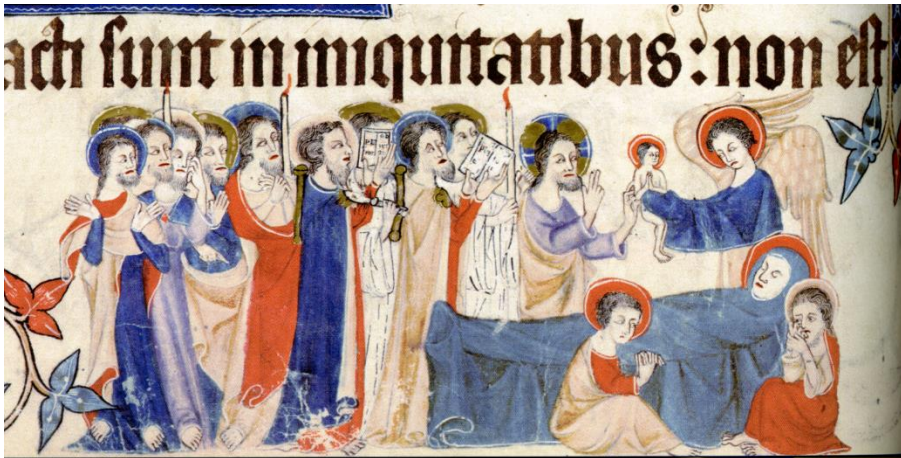 acti sunt in iniquitatibus : non est